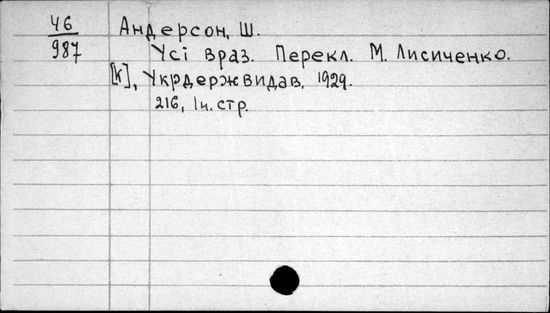 46 Андерсон, Ш.
987 Усі враз. Перекл. М. Лисиченко.
[К], Укрдержвидав, 1929.
216, 1н. стр.